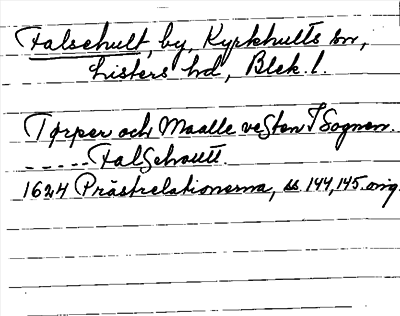 Falsehult, by, Kyrkhults sn,
Listers hd, Blek. l.
Torper och Maalle vesten I Sognen.
----- Falsehoutt.
1624 Prästrelationerna, ss 144, 145. orig.